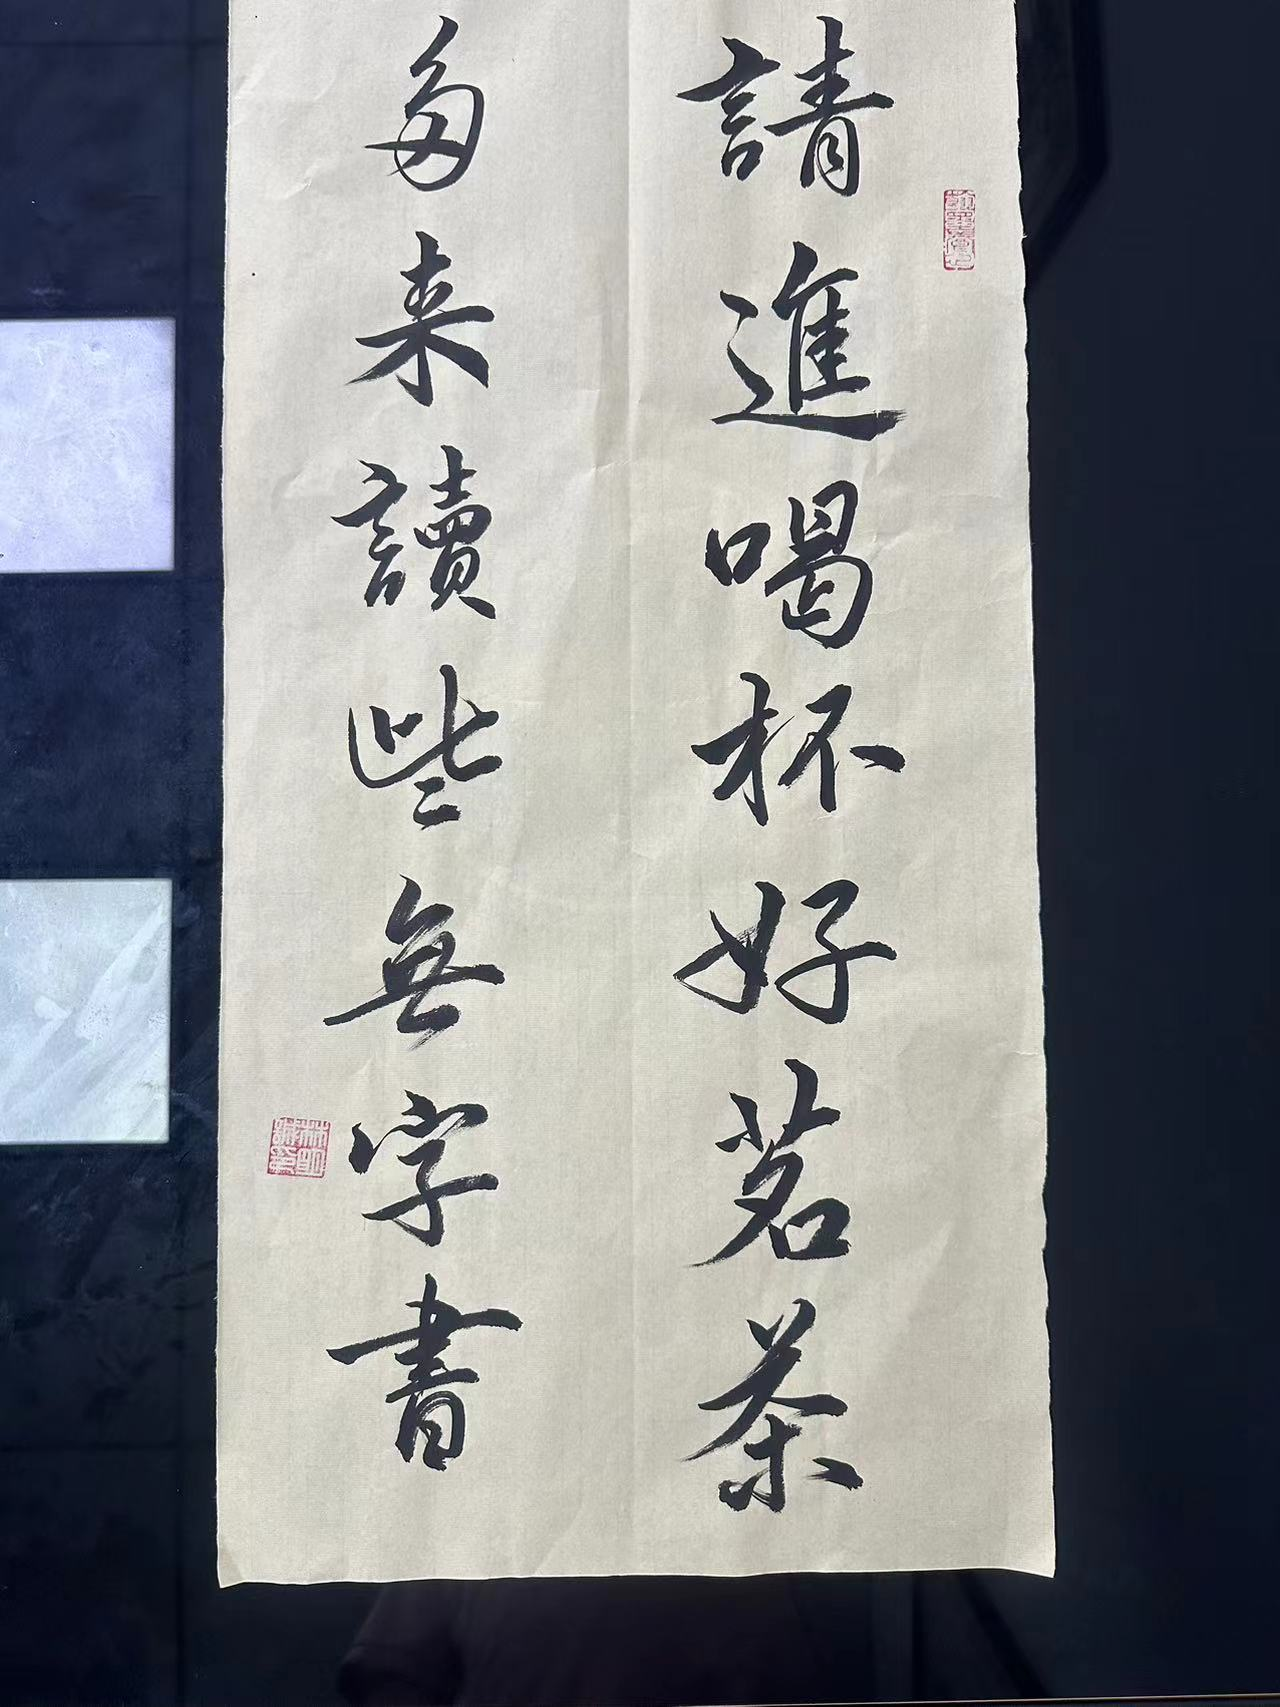 請進喝杯好茗茶
多来讀些無字書